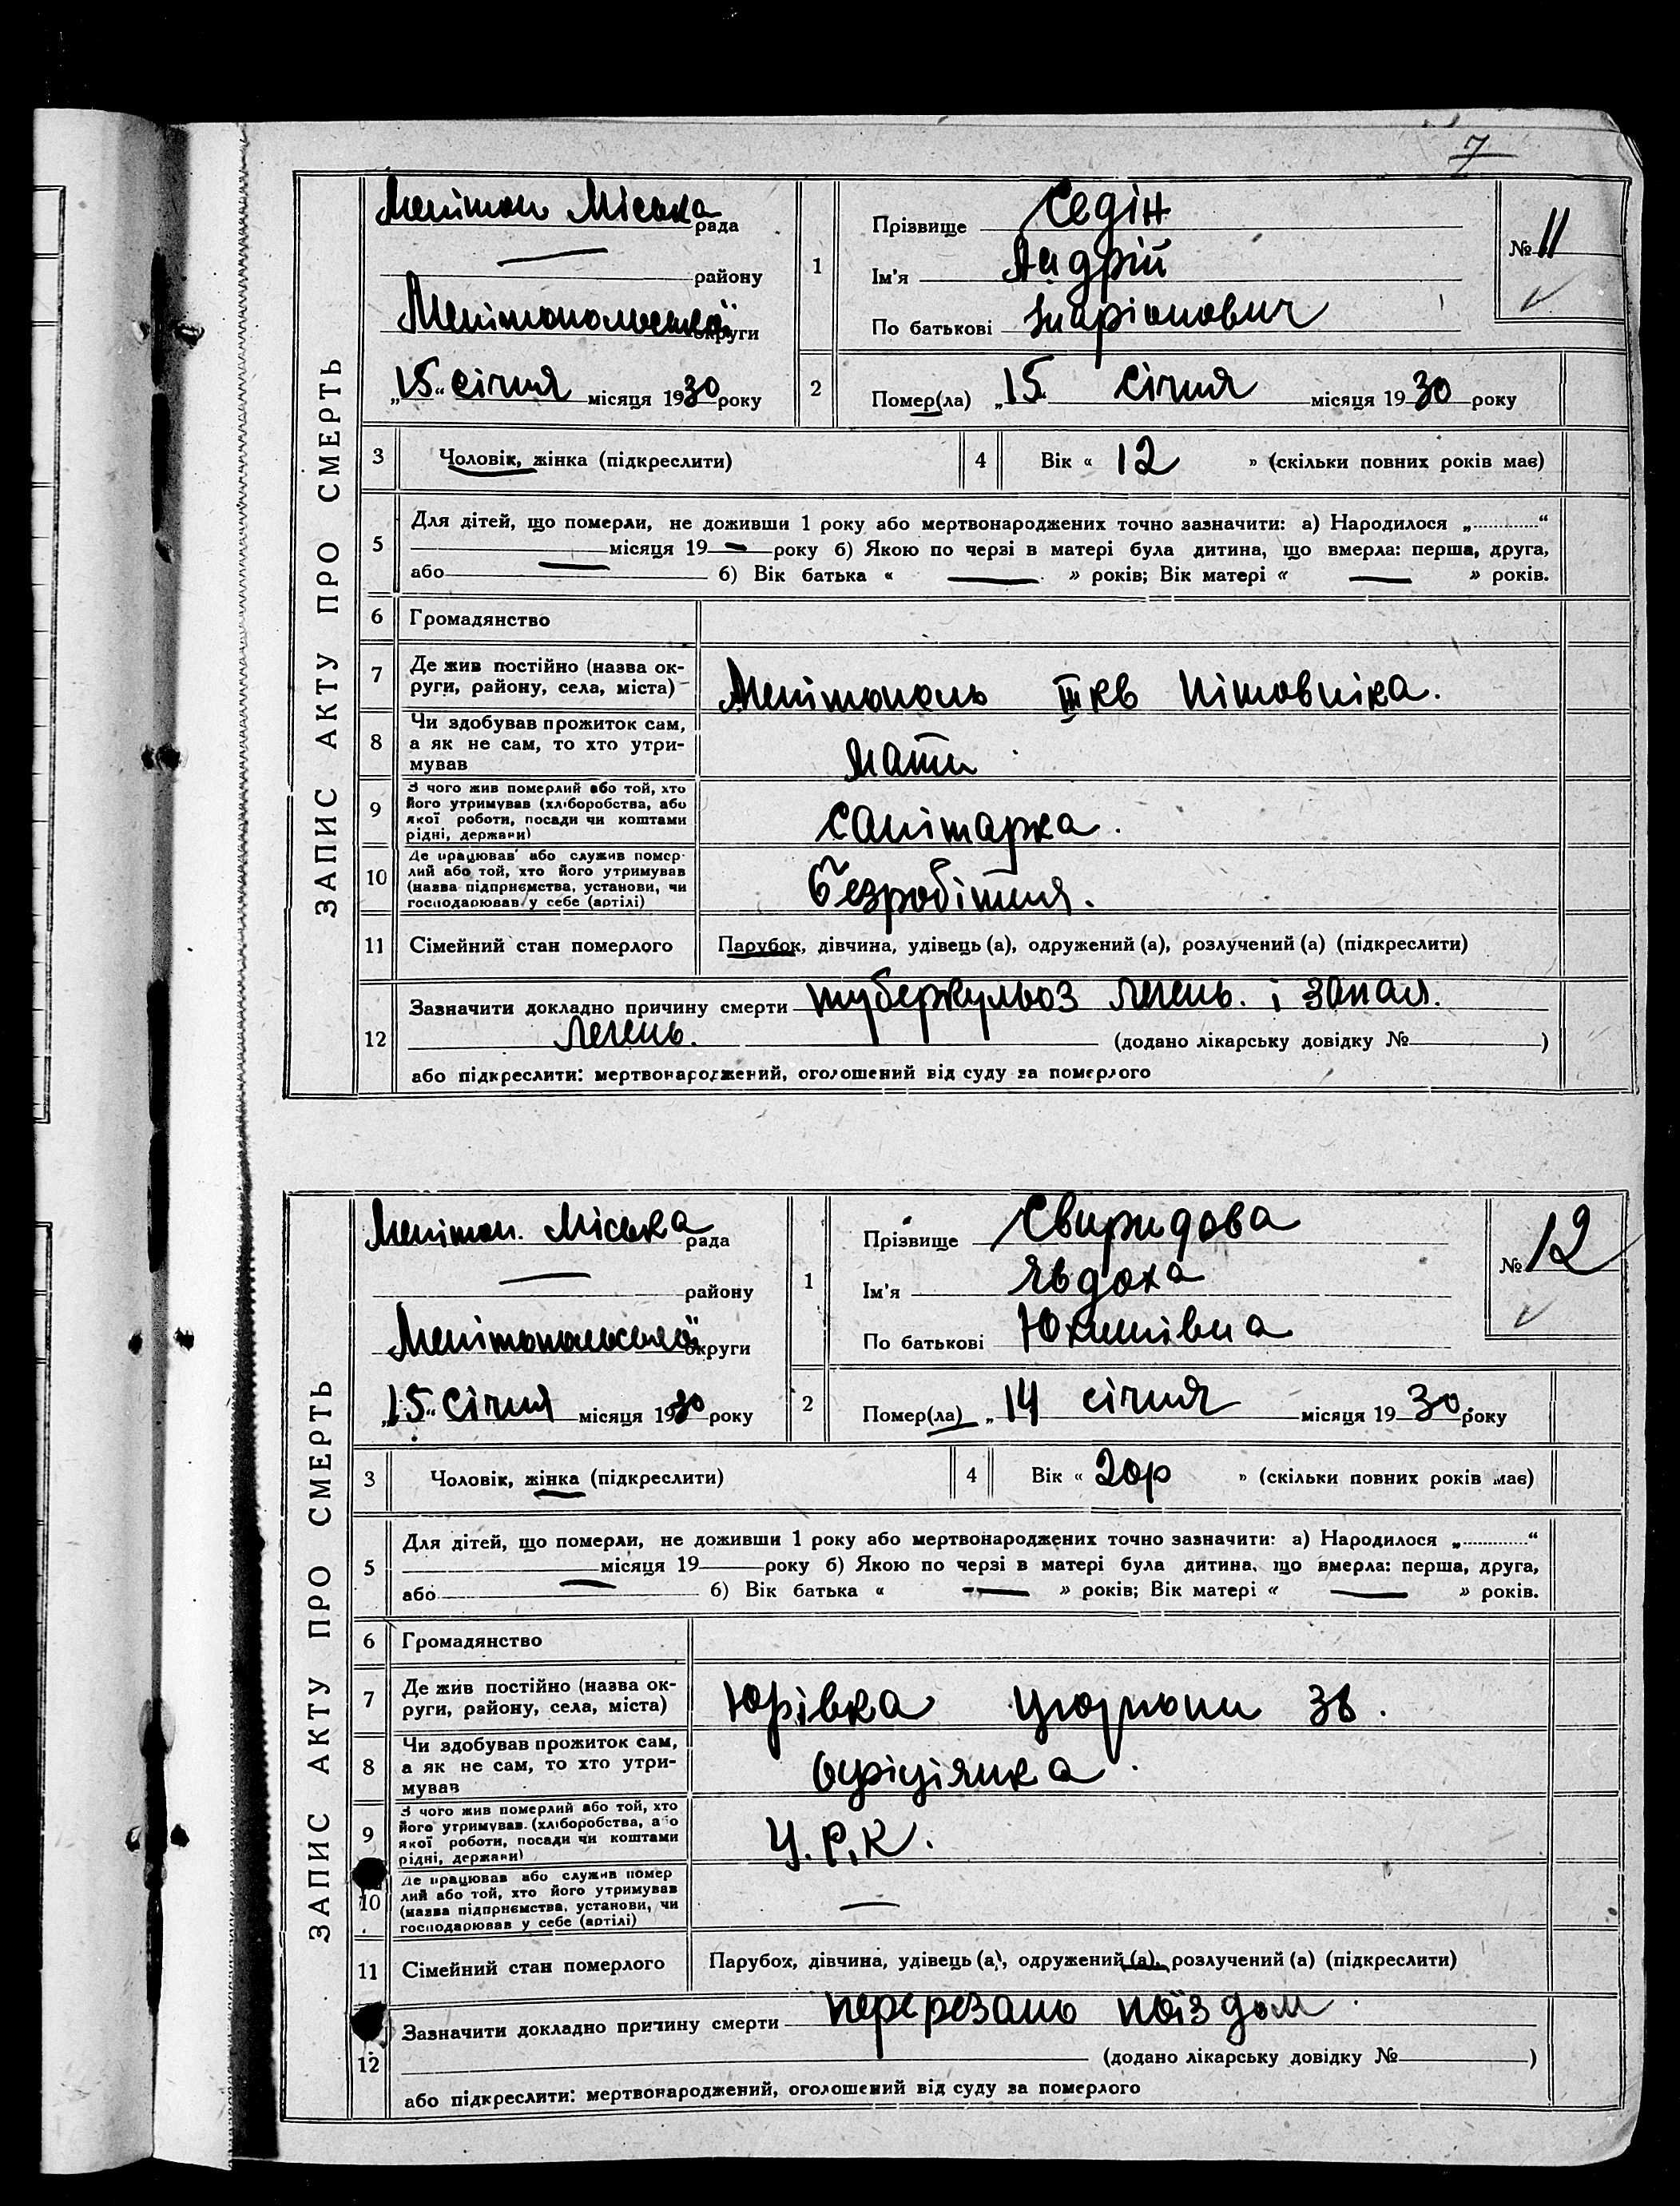 7
ЗАПИС АКТУ ПРО СМЕРТЬ
Мелітоп. Міська рада
району
Мелітопольської округи
„15“ січня місяця 1930 року
1
Прізвище Седін
Ім'я Андрій
По батькові Іларіонович
№ 11
2
Помер(ла) „15 січня місяця 1930 року
3
Чоловік, жінка (підкреслити)
4
Вік « 12 » (скільки повних років має)
5
Для дітей, що померли, не доживши 1 року або мертвонароджених точно зазначити: а) Народилося „ “
місяця 19 року б) Якою по черзі в матері була дитина, що вмерла: перша, друга,
або б) Вік батька « » років; Вік матері « » років.
6
Громадянство
7
Де жив постійно (назва ок-
руги, району, села, міста)
Мелітополь III кв
8
Чи здобував прожиток сам,
а як не сам, то хто утри-
мував
мати
9
З чого жив померлий або той, хто
його утримував (хліборобства, або
якої роботи, посади чи коштами
рідні, держави)
санітарка.
10
Де працював або служив помер-
лий або той, хто його утримував
(назва підприємства, установи, чи
господарював у себе (артілі)
безробітня.
11
Сімейний стан померлого
Парубок, дівчина, удівець (а), одружений (а), розлучений (а) (підкреслити)
12
Зазначити докладно причину смерти туберкульоз легень. і запал.
легень. (додано лікарську довідку № )
або підкреслити: мертвонароджений, оголошений від суду за померлого
ЗАПИС АКТУ ПРО СМЕРТЬ
Мелітоп. Міська рада
району
Мелітопольської округи
„15“ січня місяця 1930 року
1
Прізвище Свиридова
Ім'я Явдоха
По батькові Юхимівна
№ 12
2
Помер(ла) „14 січня місяця 1930 року
3
Чоловік, жінка (підкреслити)
4
Вік « 20р » (скільки повних років має)
5
Для дітей, що померли, не доживши 1 року або мертвонароджених точно зазначити: а) Народилося „ “
місяця 19 року б) Якою по черзі в матері була дитина, що вмерла: перша, друга,
або б) Вік батька « » років; Вік матері « » років.
6
Громадянство
7
Де жив постійно (назва ок-
руги, району, села, міста)
Юрівка
8
Чи здобував прожиток сам,
а як не сам, то хто утри-
мував
9
З чого жив померлий або той, хто
його утримував. (хліборобства, або
якої роботи, посади чи коштами
рідні, держави)
У.Р.К.
10
Де працював або служив помер
лий або той, хто його утримував
(назва підприємства, установи, чи
господарював у себе (артілі)
11
Сімейний стан померлого
Парубох, дівчина, удівець (а), одружений (а), розлучений (а) (підкреслити)
12
Зазначити докладно причину смерти перерезано поїздом
(додано лікарську довідку № )
або підкреслити: мертвонароджений, оголошений від суду за померлого